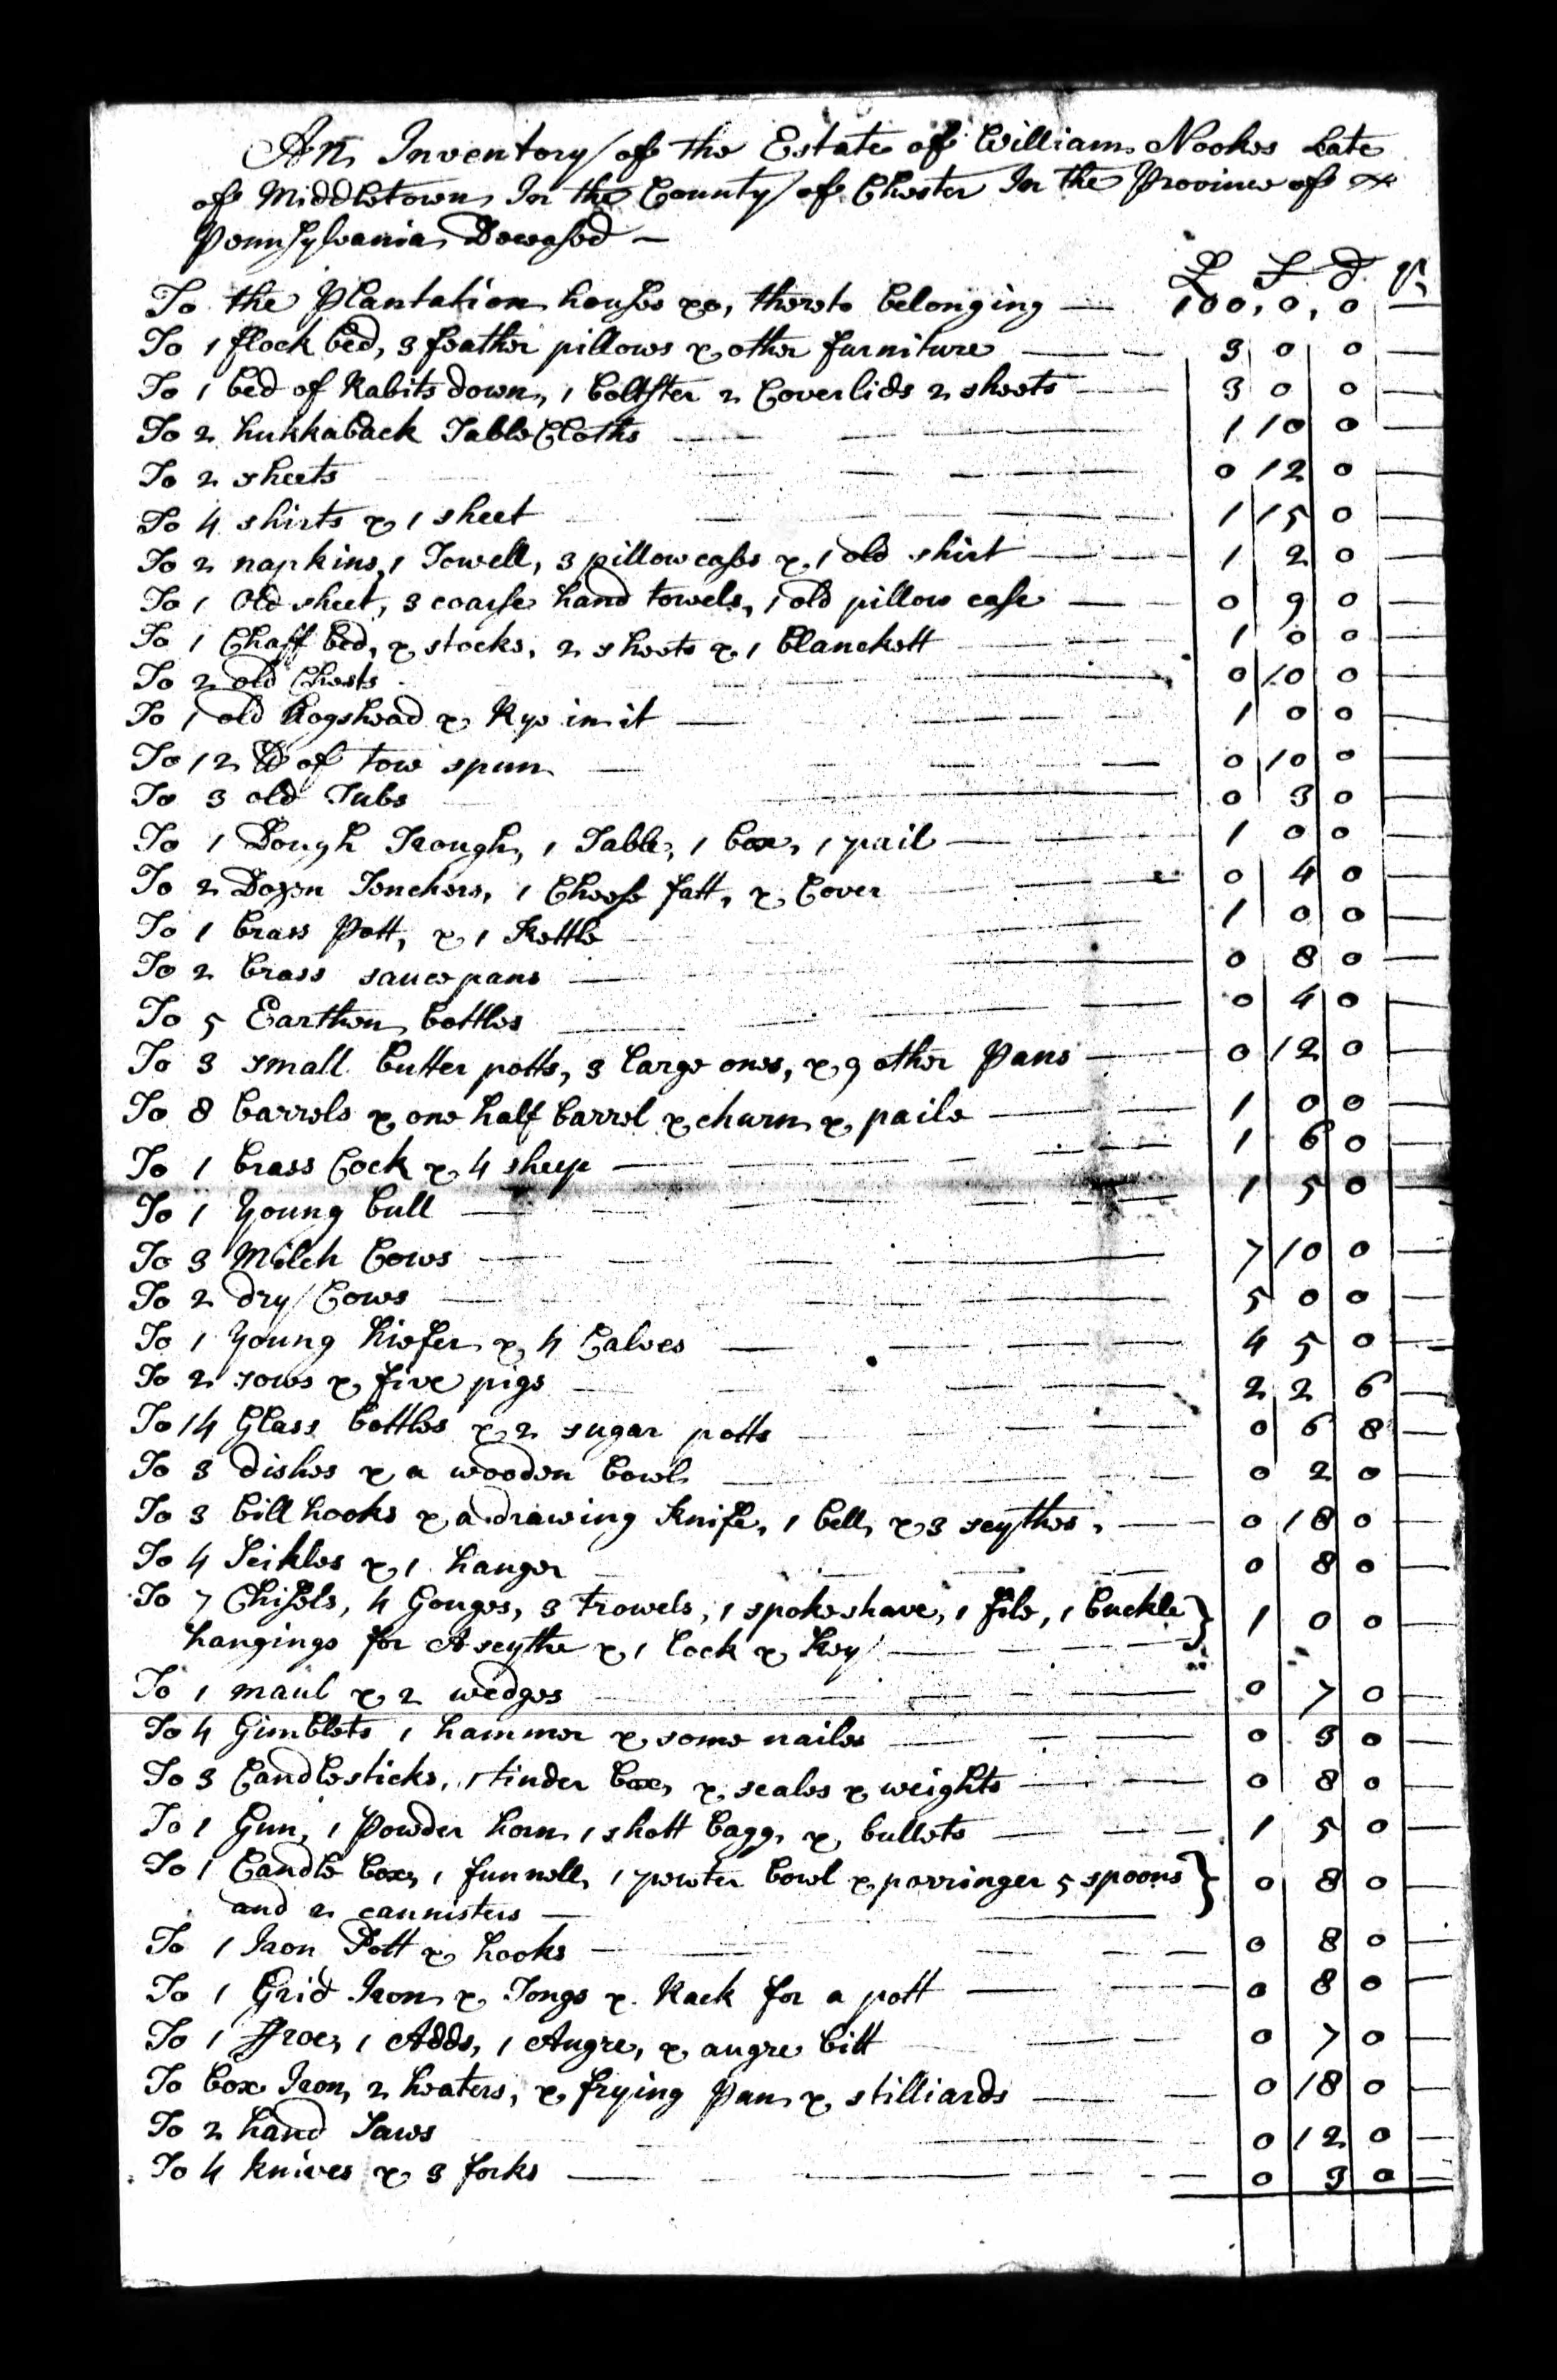 An Inventory of the Estate of William Nookes Late
of Middletown In the County of Chester In the Province of
Pennsylvania Deceased —
£ s d q
To the Plantation houses &c, thereto belonging — 100, 0, 0 —
To 1 flock bed, 3 feather pillows & other furniture — 3 0 0 —
To 1 bed of Rabits down, 1 bolster 2 Coverlids 2 sheets — 3 0 0 —
To 2 hukkaback Table Cloths — 1 10 0 —
To 2 sheets — 0 12 0 —
To 4 shirts & 1 sheet — 1 15 0 —
To 2 napkins, 1 Towell, 3 pillowcases & 1 old shirt — 1 2 0 —
To 1 Old sheet, 3 coarse hand towels, 1 old pillow case — 0 9 0 —
To 1 Chaff bed, & stocks, 2 sheets & 1 blanckett — 1 0 0 —
To 2 old Chests — 0 10 0 —
To 1 old hogshead & Rye in it — 1 0 0 —
To 12 lb of tow spun — 0 10 0 —
To 3 old Tubs — 0 3 0 —
To 1 Dough Trough, 1 Table, 1 box, 1 pail — 1 0 0 —
To 2 Dozen Tenchers, 1 Cheese fatt, & Cover — 0 4 0 —
To 1 brass Pott, & 1 Kettle — 1 0 0 —
To 2 brass saucepans — 0 8 0 —
To 5 Earthen bottles — 0 4 0 —
To 3 small butter potts, 3 large ones, & 9 other Pans — 0 12 0 —
To 8 barrels & one half barrel & churn & paile — 1 0 0 —
To 1 brass Cock & 4 sheep — 1 6 0 —
To 1 Young bull — 1 5 0 —
To 3 Milch Cows — 7 10 0 —
To 2 dry Cows — 5 0 0 —
To 1 Young hiefer & 4 Calves — 4 5 0 —
To 2 sows & five pigs — 2 2 6 —
To 14 Glass bottles & 2 sugar potts — 0 6 8 —
To 3 dishes & a wooden bowl — 0 2 0 —
To 3 bill hooks & a drawing Knife, 1 bell, & 3 scythes, — 0 18 0 —
To 4 Seikles & 1 hanger — 0 8 0 —
To 7 Chisels, 4 Gouges, 3 trowels, 1 spokeshave, 1 file, 1 buckle } 1 0 0 —
hangings for A scythe & 1 lock & Key —
To 1 maul & 2 wedges — 0 7 0 —
To 4 Gimblets 1 hammer & some nailes — 0 3 0 —
To 3 Candlesticks, 1 tinder box, & scales & weights — 0 8 0 —
To 1 Gun, 1 Powder horn 1 shott bagg, & bullets — 1 5 0 —
To 1 Candle box, 1 funnell, 1 pewter bowl & porringer 5 spoons } 0 8 0 —
and 2 cannisters —
To 1 Iron Pott & hooks — 0 8 0 —
To 1 Grid Iron & Tongs & Rack for a pott — 0 8 0 —
To 1 ffroe, 1 Adds, 1 Augre, & augre bitt — 0 7 0 —
To box Iron, 2 heaters, & frying Pan & stilliards — 0 18 0 —
To 2 hand Saws — 0 12 0 —
To 4 knives & 3 forks — 0 3 0 —